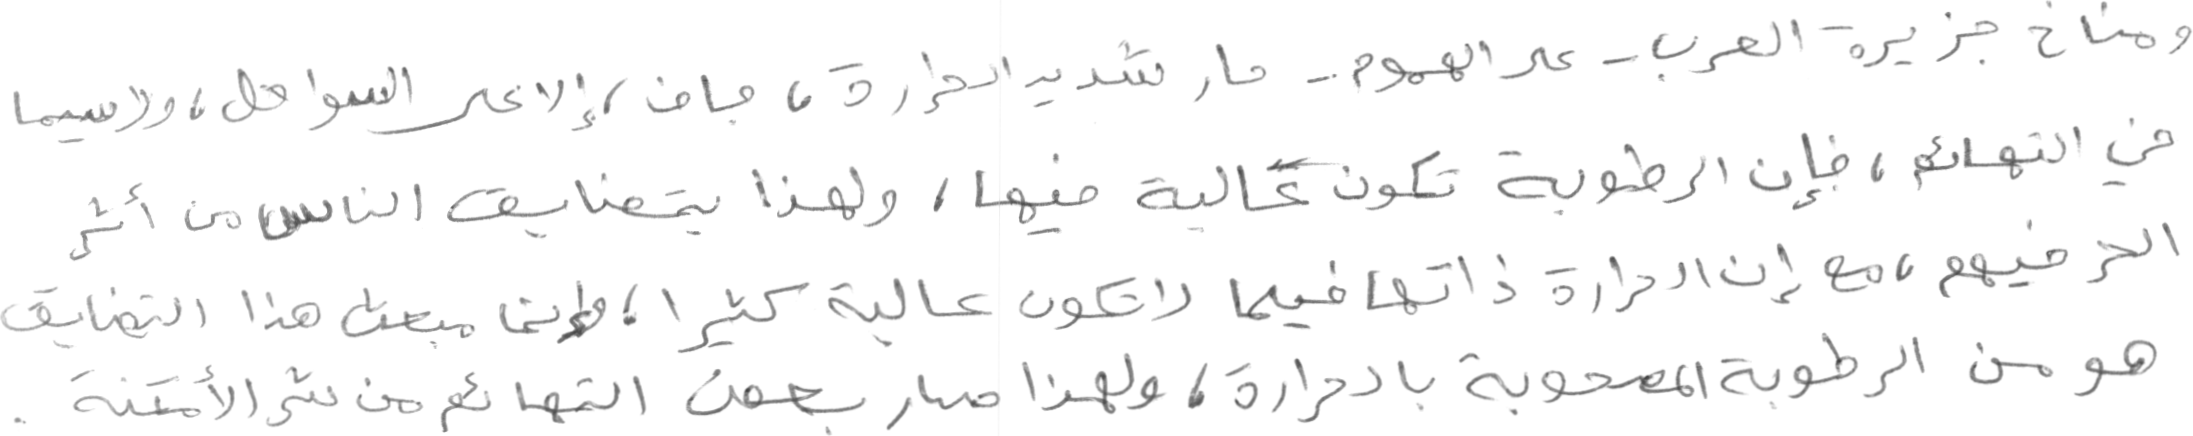 ومناخ جزيرة العرب - على العموم - حار شديد الحرارة، جاف، إلا على السواحل، ولاسيما
في التهائم، فإن الرطوبة تكون عالية فيها، ولهذا يتضايق الناس من أثر
الحر فيهم، مع إن الحرارة ذاتها فيها لا تكون عالية كثيرا، وإنما مبعث هذا التضايق
هو من الرطوبة المصحوبة بالحرارة، ولهذا صار بعض التهائم من شر الأمكنة.